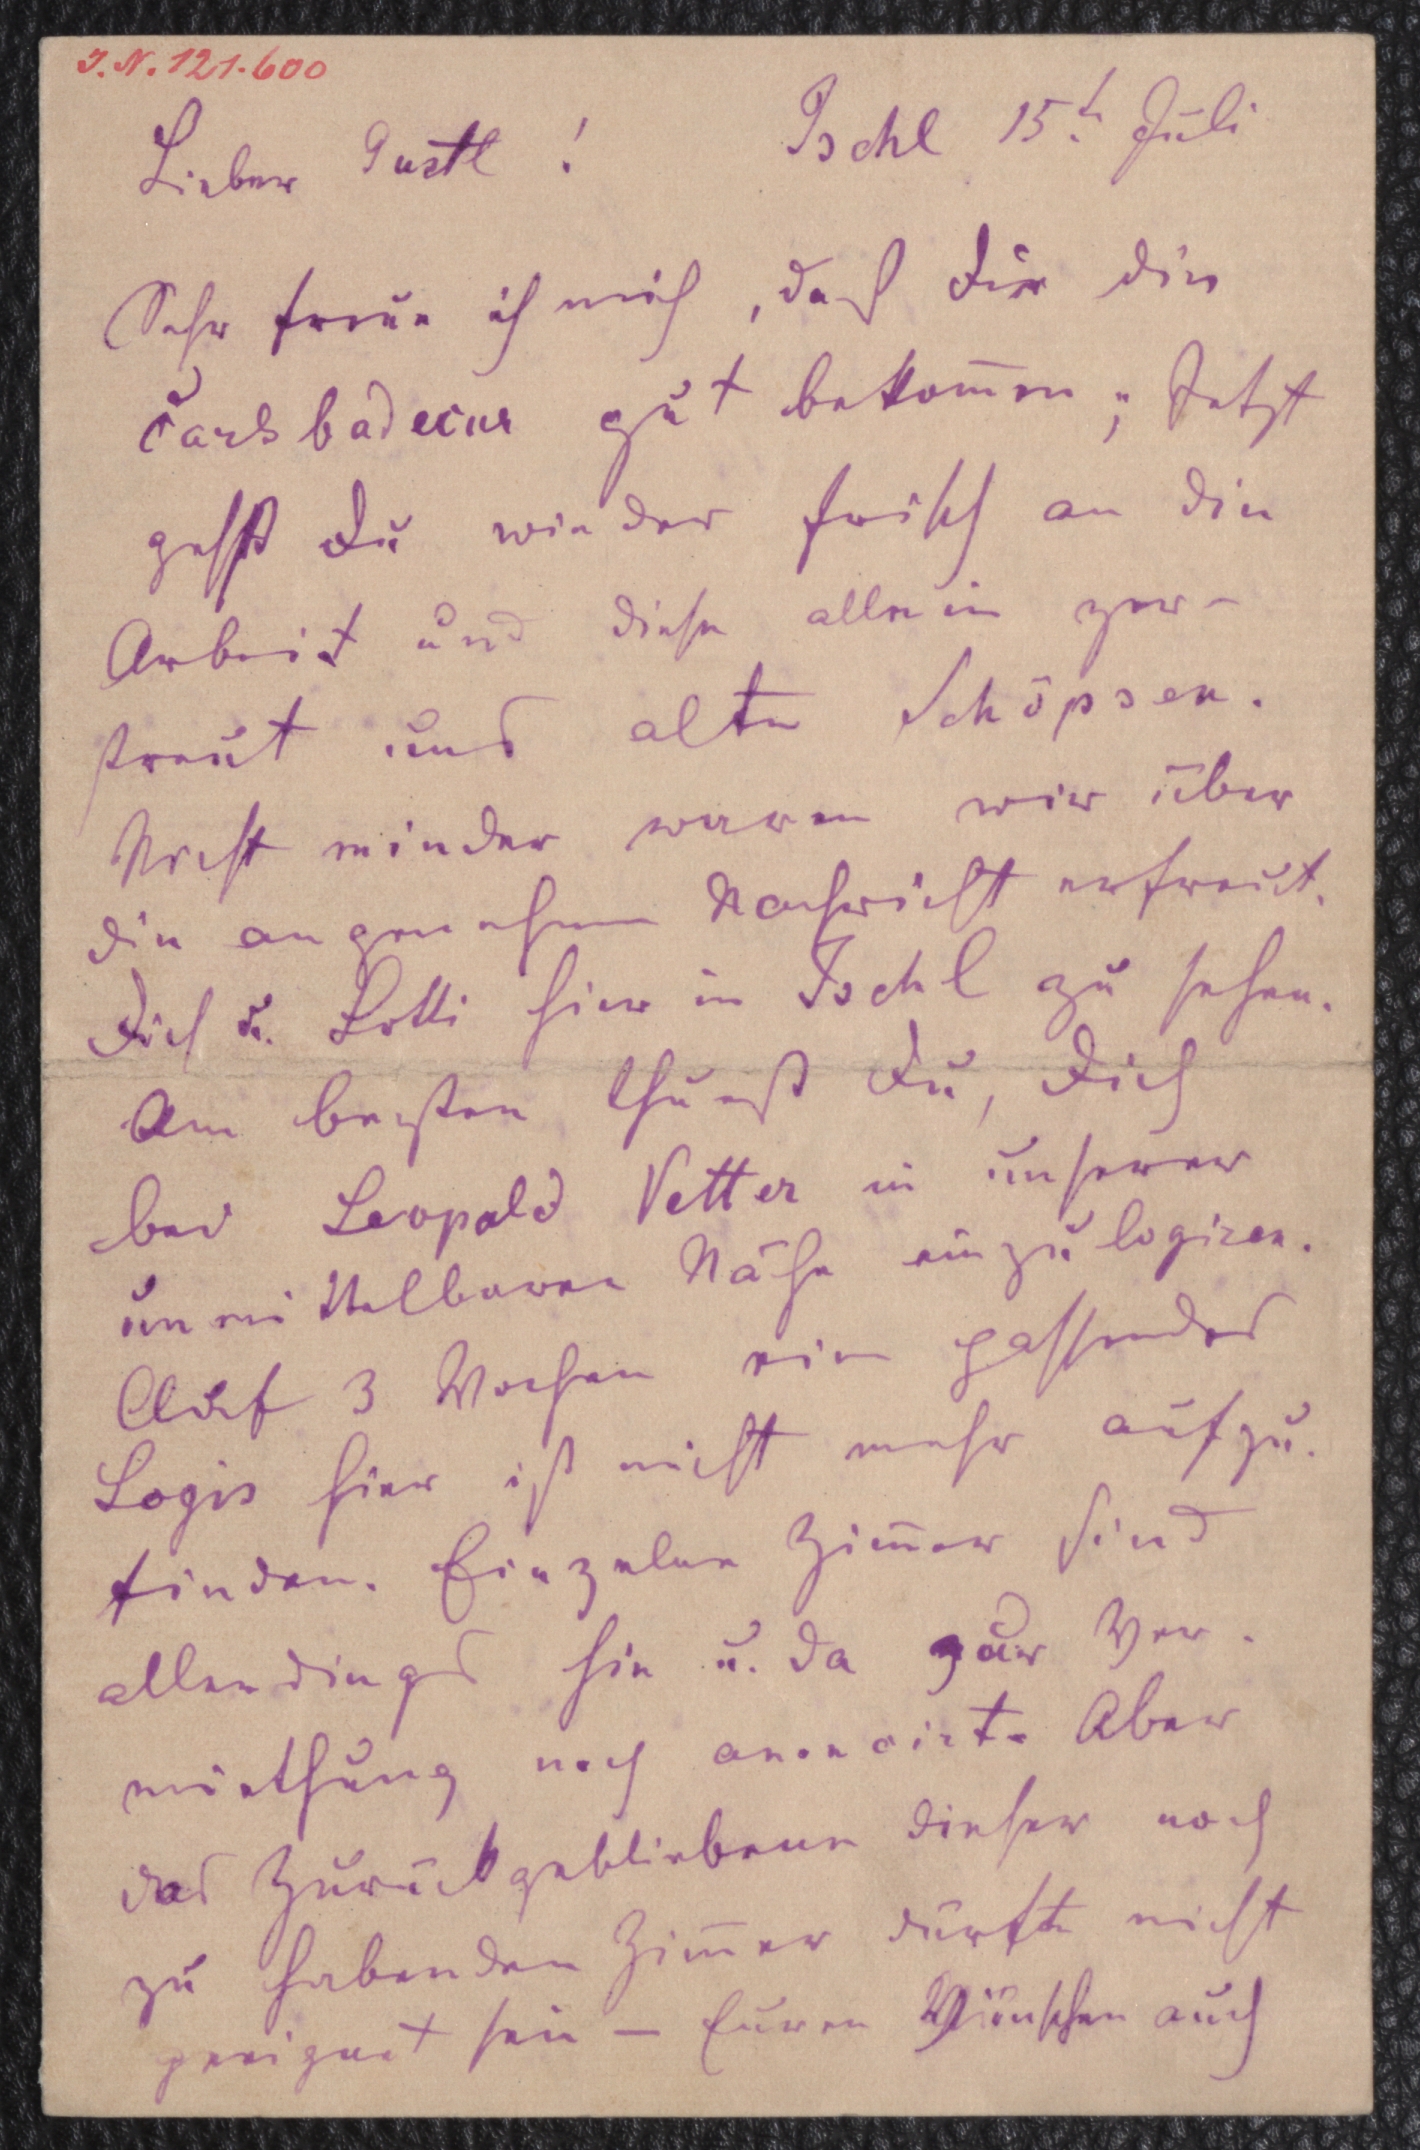 I.N. 121.600
Ischl 15t. Juli
Lieber Gustl!
Sehr freue ich mich, daß Dir die
Carlsbadecur gut bekommen; Jetzt
gehst Du wieder frisch an die
Arbeit und diese allein zer-
streut uns alte Schöpsen.
Nicht minder waren wir über
die angenehme Nachricht erfreut.
Dich u. Lotti hier in Ischl zu sehen.
Am besten thuest Du, Dich
bei Leopold Vetter in unserer
unmittelbaren Nähe einzulogiren.
Auf 3 Wochen ein passendes
Logis hier ist nicht mehr aufzu-
finden. Einzelne Zimmer sind
allerdings hie u. da zur Ver-
miethung noch Aber
das Zurückgebliebene dieser noch
zu habenden Zimmer dürfte nicht
geeignet sein — Euren Wünschen auch